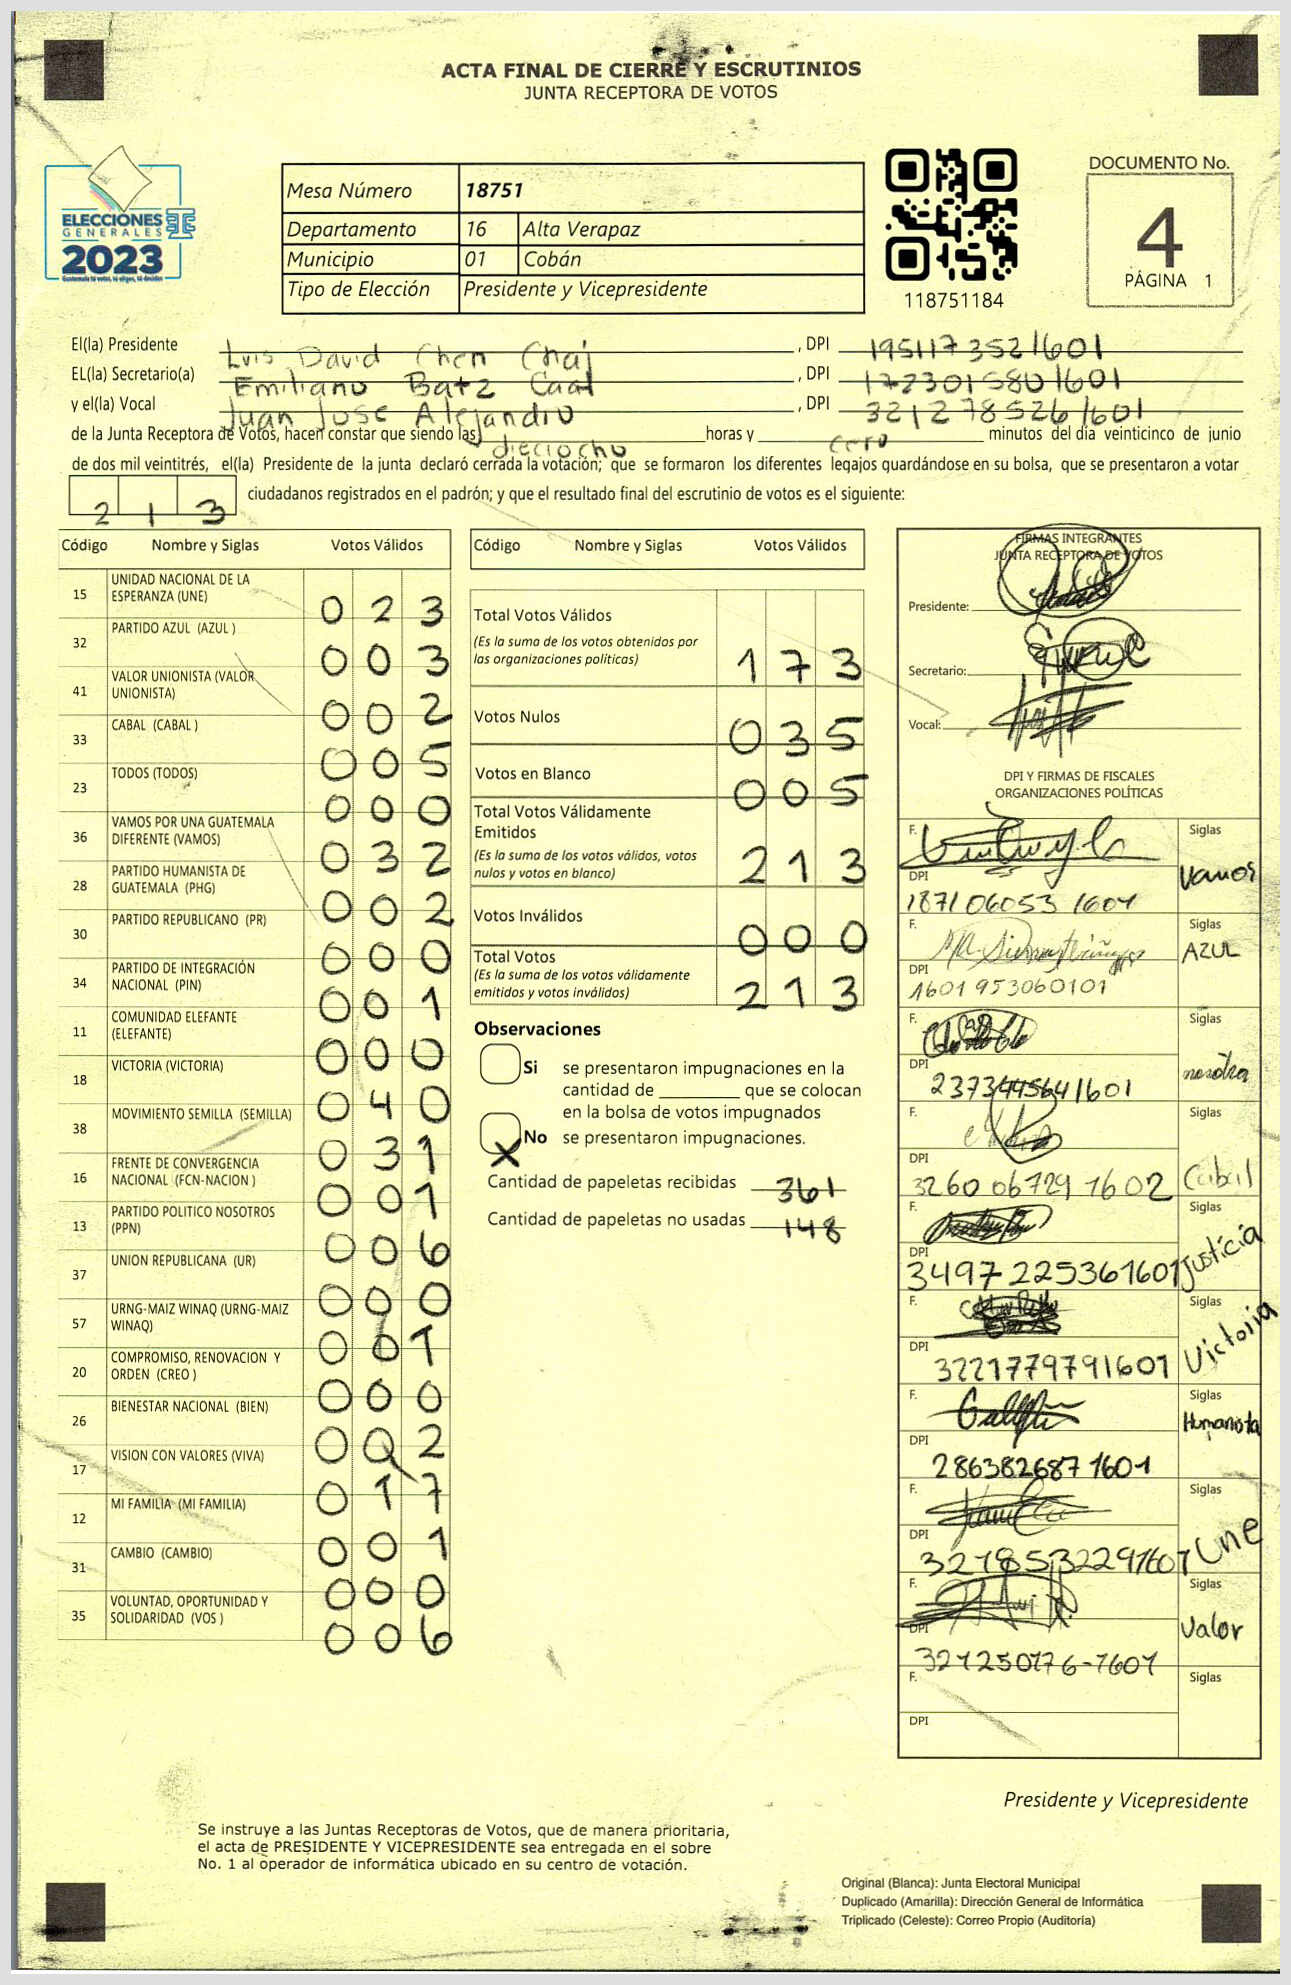 ACTA FINAL DE CIERRE Y ESCRUTINIOS
JUNTA RECEPTORA DE VOTOS
ELECCIONES
GENERALES
2023
Mesa Número 18751
Departamento 16 Alta Verapaz
Municipio 01 Cobán
Tipo de Elección Presidente y Vicepresidente
118751184
DOCUMENTO No.
4
PÁGINA 1
El(la) Presidente Luis David Chen Chaj, DPI 1951173521601
EL(la) Secretario(a) Emiliano Batz Caal, DPI 1723015801601
y el(la) Vocal Juan José Alejandro, DPI 3212785261601
de la Junta Receptora de Votos, hacen constar que siendo las dieciocho horas y cero minutos del día veinticinco de junio
de dos mil veintitrés, el(la) Presidente de la junta declaró cerrada la votación; que se formaron los diferentes legajos guardándose en su bolsa, que se presentaron a votar
2 1 3 ciudadanos registrados en el padrón; y que el resultado final del escrutinio de votos es el siguiente:
Código Nombre y Siglas Votos Válidos
15 UNIDAD NACIONAL DE LA ESPERANZA (UNE) 0 2 3
32 PARTIDO AZUL (AZUL ) 0 0 3
41 VALOR UNIONISTA (VALOR UNIONISTA) 0 0 2
33 CABAL (CABAL ) 0 0 5
23 TODOS (TODOS) 0 0 0
36 VAMOS POR UNA GUATEMALA DIFERENTE (VAMOS) 0 3 2
28 PARTIDO HUMANISTA DE GUATEMALA (PHG) 0 0 2
30 PARTIDO REPUBLICANO (PR) 0 0 0
34 PARTIDO DE INTEGRACIÓN NACIONAL (PIN) 0 0 1
11 COMUNIDAD ELEFANTE (ELEFANTE) 0 0 0
18 VICTORIA (VICTORIA) 0 4 0
38 MOVIMIENTO SEMILLA (SEMILLA) 0 3 1
16 FRENTE DE CONVERGENCIA NACIONAL (FCN-NACION ) 0 0 1
13 PARTIDO POLITICO NOSOTROS (PPN) 0 0 6
37 UNION REPUBLICANA (UR) 0 0 0
57 URNG-MAIZ WINAQ (URNG-MAIZ WINAQ) 0 0 1
20 COMPROMISO, RENOVACION Y ORDEN (CREO ) 0 0 0
26 BIENESTAR NACIONAL (BIEN) 0 0 2
17 VISION CON VALORES (VIVA) 0 1 7
12 MI FAMILIA (MI FAMILIA) 0 0 1
31 CAMBIO (CAMBIO) 0 0 0
35 VOLUNTAD, OPORTUNIDAD Y SOLIDARIDAD (VOS ) 0 0 6
Código Nombre y Siglas Votos Válidos
Total Votos Válidos 1 7 3
(Es la suma de los votos obtenidos por
las organizaciones políticas)
Votos Nulos 0 3 5
Votos en Blanco 0 0 5
Total Votos Válidamente
Emitidos 2 1 3
(Es la suma de los votos válidos, votos
nulos y votos en blanco)
Votos Inválidos 0 0 0
Total Votos 2 1 3
(Es la suma de los votos válidamente
emitidos y votos inválidos)
Observaciones
Si se presentaron impugnaciones en la
cantidad de ________ que se colocan
en la bolsa de votos impugnados
X No se presentaron impugnaciones.
Cantidad de papeletas recibidas 361
Cantidad de papeletas no usadas 148
FIRMAS INTEGRANTES
JUNTA RECEPTORA DE VOTOS
Presidente:
Secretario:
Vocal:
DPI Y FIRMAS DE FISCALES
ORGANIZACIONES POLÍTICAS
F. Siglas Vamos
DPI 187106053 1601
F. Siglas AZUL
DPI 1601953060101
F. Siglas nosotros
DPI 2373445641601
F. Siglas Cabal
DPI 3260 06729 1602
F. Siglas Justicia
DPI 3497 225361601
F. Siglas Victoria
DPI 3221779791601
F. Siglas Humanista
DPI 286382687 1601
F. Siglas Une
DPI 3218532291601
F. Siglas Valor
DPI 321250176-1601
F. Siglas
DPI
Presidente y Vicepresidente
Se instruye a las Juntas Receptoras de Votos, que de manera prioritaria,
el acta de PRESIDENTE Y VICEPRESIDENTE sea entregada en el sobre
No. 1 al operador de informática ubicado en su centro de votación.
Original (Blanca): Junta Electoral Municipal
Duplicado (Amarilla): Dirección General de Informática
Triplicado (Celeste): Correo Propio (Auditoría)